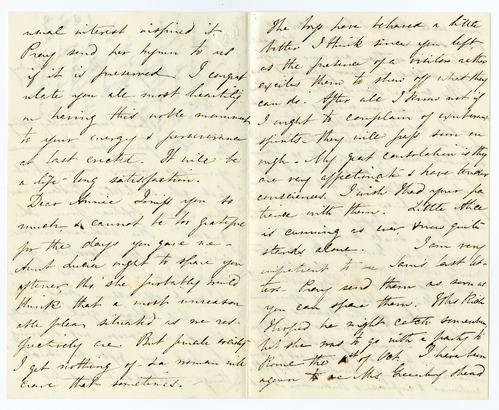 usual interest inspired it.
Pray send her hymn to us
if it is preserved. I congrat
ulate you all most heartily
on having this noble monument
to your energy & perseverance
at last erected. It will be
a life-long satisfaction.
Dear Annie I miss you so
much & cannot be too grateful
for the days you gave me.
Aunt Lucia ought to spare you
oftener, tho she probably would
think that a most unreason
able plea, situated as we res
pectively are. But female society
I get nothing of & a woman will
crave that sometimes.
The boys have behaved a little
better I think since you left,
as the presence of a visitor rather
excites them to show off what they
can do. After all I know not if
I ought to complain of exuberant
spirits they will pass soon en
ough. My great consolation is they
are very affectionate & have tender
consciences. I wish I had your pa
tience with them. Little Alice
is cunning as ever & now quite
stands alone. I am very
impatient to see last let
ters. Pray send them as soon as
you can spare them.
I hoped he might catch
but she was to go with a party to
Rome the 1st of Oct. I have been
again to see Mrs. Greenleaf